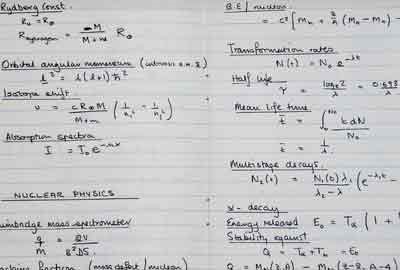 Rydberg Const.
R∞ = R∞
R Hydrogen = M / M+m R∞
Orbital angular momentum
l² = l(l+1)ħ²
Isotope shift
ν = cR∞M / M+m (1/n₁² - 1/n₂²)
Absorption spectra
I = I₀e^-nx
NUCLEAR PHYSICS
mass spectrometer
q/M = 2V / B²DS
fraction (mass defect/nucleon)
B.E/nucleon
= c² [Mn + Z/A (MH - Mn) -
Transformation rates
N(t) = N₀e^-λt
Half life
τ = loge2 / λ = 0.693 / λ
Mean life time
t̄ = ∫ t dN / N₀
t̄ = 1/λ
Multistage decays
N₂(t) = N₁(0)λ₁ / λ₂ - λ₁ (e^-λ₁t -
α - decay
Energy released E₀ = Tα (1 +
Stability against
Q = Tα + Tb = E₀
Q = Mn(Z,A) - Mn(Z-2,A-4)